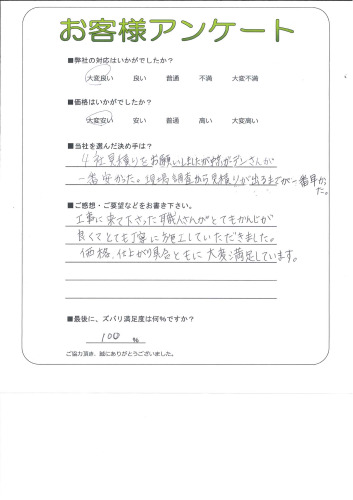 お客様アンケート
■弊社の対応はいかがでしたか？
大変良い 良い 普通 不満 大変不満
■価格はいかがでしたか？
大変安い 安い 普通 高い 大変高い
■当社を選んだ決め手は？
4社見積りをお願いしましたが ガーデンさんが
一番安かった。現場調査から見積りが出るまでが一番早かった。
■ご感想・ご要望などをお書き下さい。
工事に来て下さった職人さんがとてもかんじが
良くてとても丁寧に施工していただきました。
価格、仕上がり具合ともに大変満足しています。
■最後に、ズバリ満足度は何％ですか？
100 %
ご協力頂き、誠にありがとうございました。